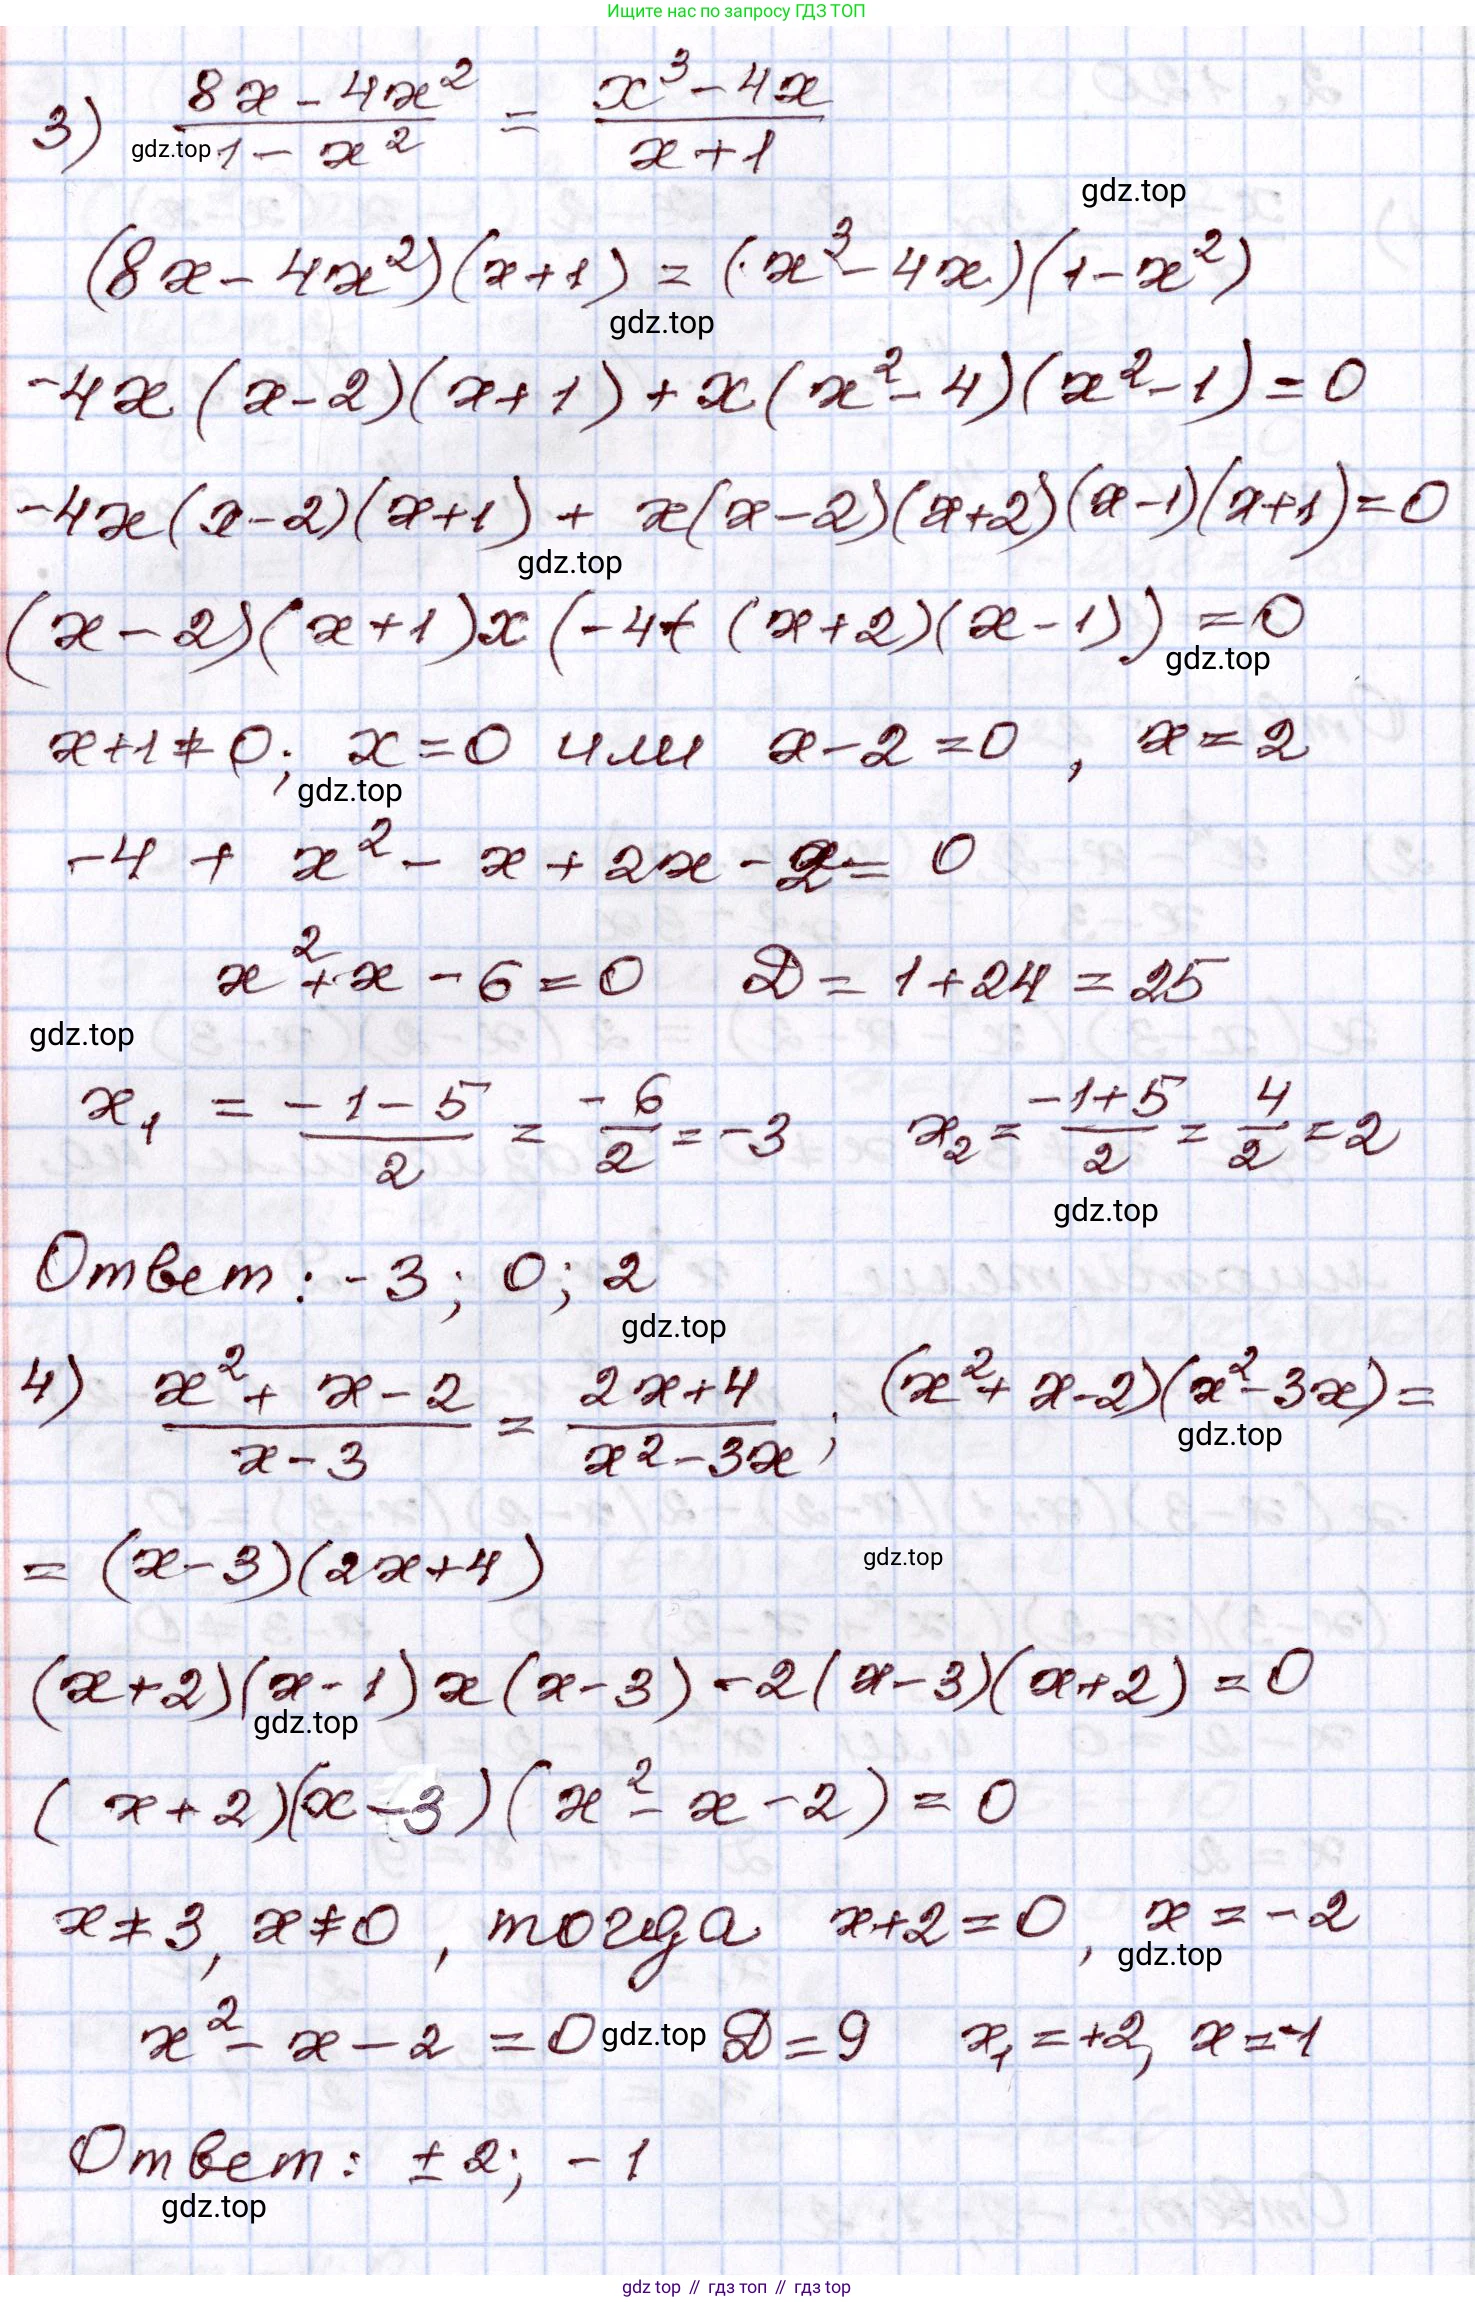 Ищите нас по запросу ГДЗ ТОП
3) (8x - 4x²)/(1 - x²) = (x³ - 4x)/(x + 1)
gdz.top
gdz.top
(8x - 4x²)(x+1) = (x³ - 4x)(1 - x²)
gdz.top
-4x(x-2)(x+1) + x(x²-4)(x²-1) = 0
-4x(x-2)(x+1) + x(x-2)(x+2)(x-1)(x+1) = 0
gdz.top
(x-2)(x+1)x(-4+(x+2)(x-1)) = 0
gdz.top
x+1≠0; x=0 или x-2=0, x=2
gdz.top
-4 + x² - x + 2x - 2 = 0
x² + x - 6 = 0 D = 1+24 = 25
gdz.top
x₁ = (-1-5)/2 = -6/2 = -3 x₂ = (-1+5)/2 = 4/2 = 2
gdz.top
Ответ: -3; 0; 2
gdz.top
4) (x² + x - 2)/(x - 3) = (2x+4)/(x² - 3x); (x² + x - 2)(x² - 3x) =
gdz.top
= (x-3)(2x+4)
gdz.top
(x+2)(x-1)x(x-3) - 2(x-3)(x+2) = 0
gdz.top
(x+2)(x-3)(x² - x - 2) = 0
x≠3, x≠0, тогда x+2=0, x=-2
gdz.top
x² - x - 2 = 0 gdz.top D=9 x₁=+2, x=-1
Ответ: ±2; -1
gdz.top
gdz top // гдз топ // гдз top